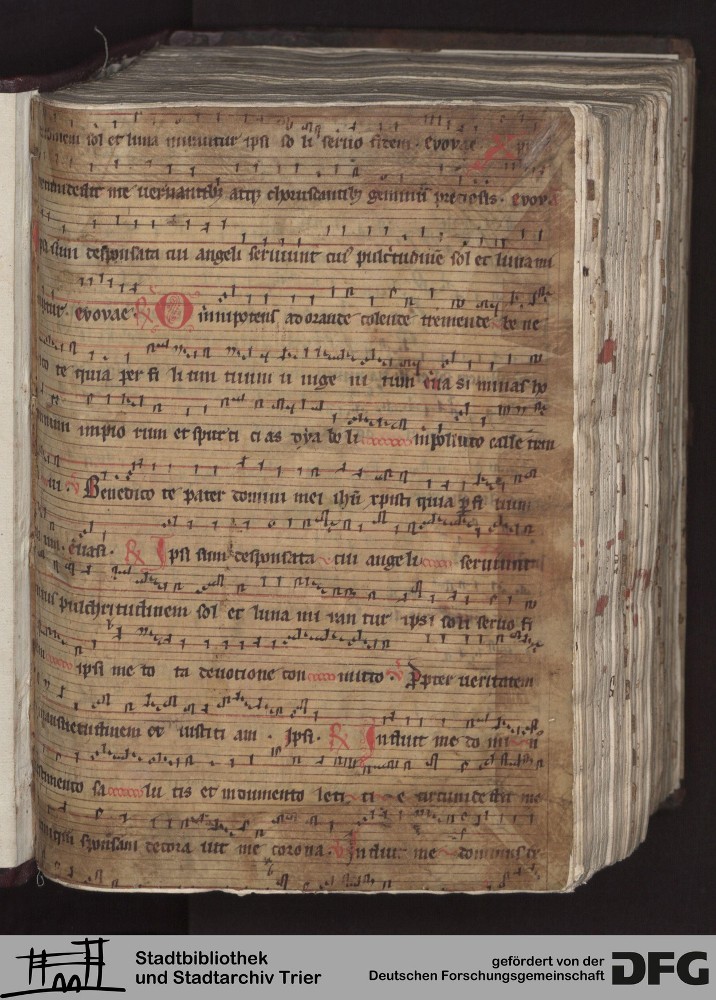 sol et luna mirantur ipsi so li seruo fidem. evovae. Xp̄c
me uernantibꝫ atqꝫ choruscantibꝫ gemmis preciosis. evova
sum desponsata cui angeli seruiunt cuiꝰ pulcritudinē sol et luna mi
evovae. ℟ Omnipotens adorande colende tremende be ne
co te quia per fi li um tuum u nige ni tum euasi minas ho
impio rum et spurci ci as dya bo li inpolluto calle tran
ui. ℣ Benedico te pater domini mei ihū xpisti quia ꝑ fi lium
euasi. ℟ Ipsi sum desponsata cui angeli seruiunt
pulchritudinem sol et luna mi ran tur ipsi soli seruo fi
ipsi me to ta deuotione con mitto ℣ Propter ueritatem
mansuetudinem et iusti ti am. Ipsi. ℟ Induit me do mi n
sa lu tis et indumento leti ti e circumdedit me
sponsam decora uit me corona. ℣ Induit me dominus
Stadtbibliothek
und Stadtarchiv Trier
gefördert von der
Deutschen Forschungsgemeinschaft
DFG